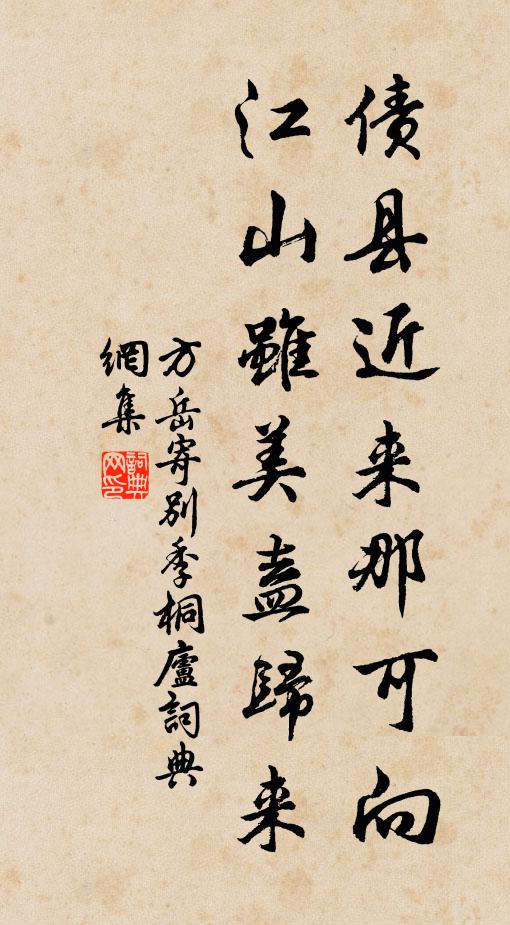 债县近来那可向
江山虽美盍歸来
方岳寄别季桐廬詞典
網集
詞典网印